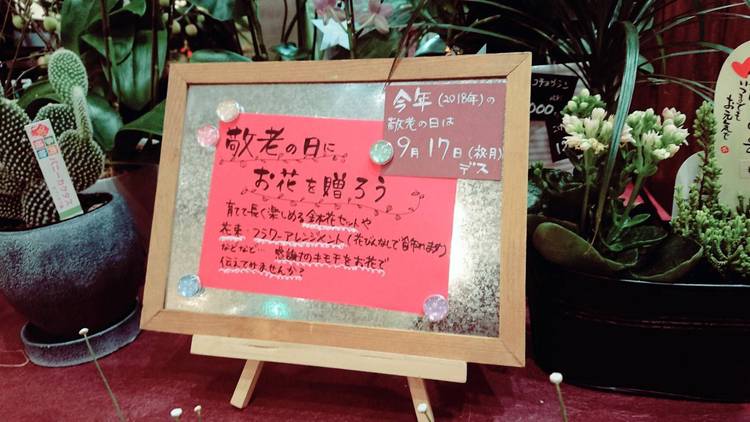 敬老の日に
お花を贈ろう
育てて長く楽しめる鉢花セットや
花束・フラワーアレンジメント(花びんなしで飾れます)
などなど… 感謝のキモチをお花で
伝えてみませんか?
今年(2018年)の
敬老の日は
9月17日(祝月)
デス
いつまでも
お元気で